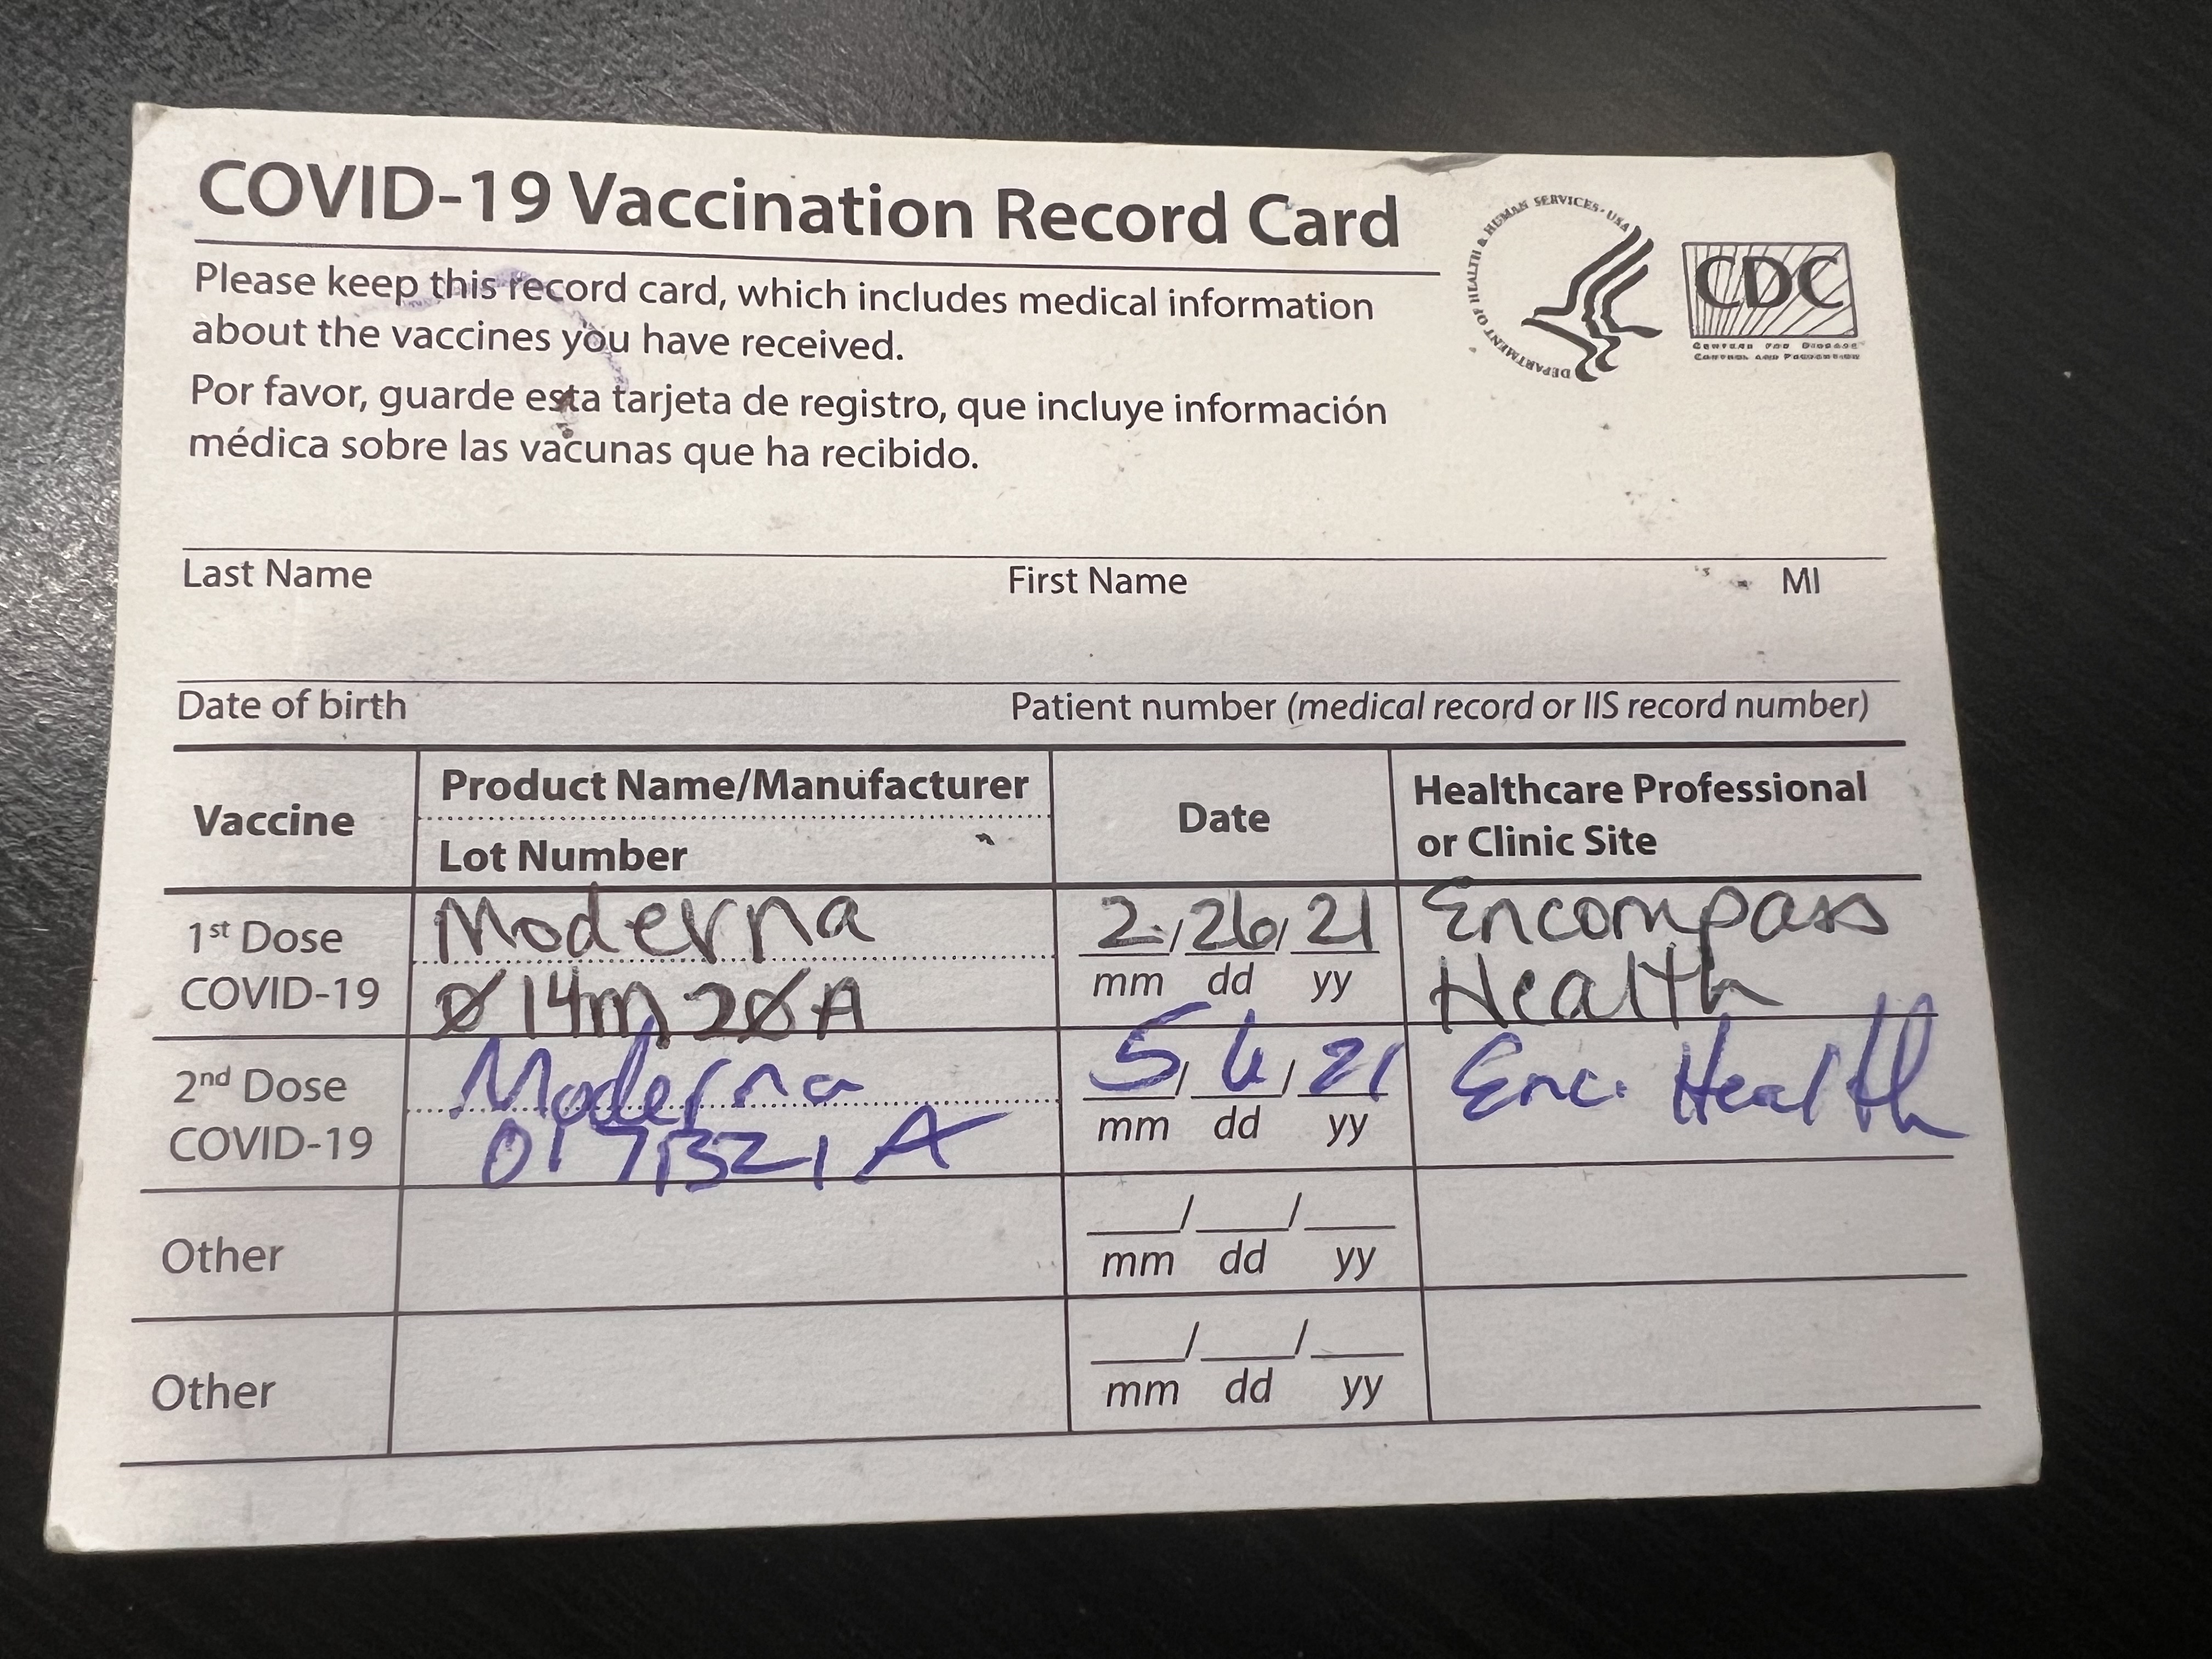 COVID-19 Vaccination Record Card
Please keep this record card, which includes medical information
about the vaccines you have received.
Por favor, guarde esta tarjeta de registro, que incluye información
médica sobre las vacunas que ha recibido.
DEPARTMENT OF HEALTH & HUMAN SERVICES · USA
CDC
CENTERS FOR DISEASE
CONTROL AND PREVENTION
Last Name First Name MI
Date of birth Patient number (medical record or IIS record number)
Vaccine Product Name/Manufacturer Date Healthcare Professional
Lot Number or Clinic Site
1st Dose Moderna 2/26/21 Encompass
COVID-19 014m20A mm dd yy Health
2nd Dose Moderna 5/4/21 Enc. Health
COVID-19 mm dd yy
Other
mm dd yy
Other
mm dd yy